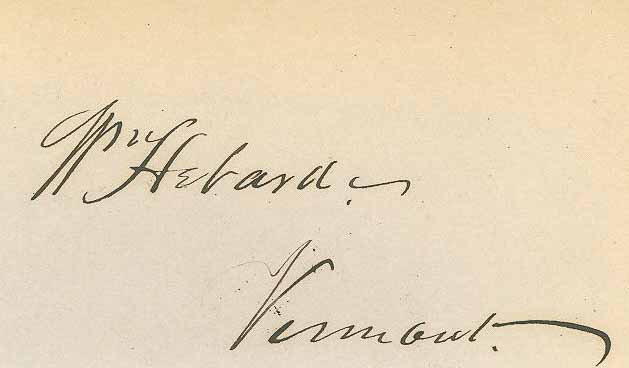 Wm Hebard.
Vermont.